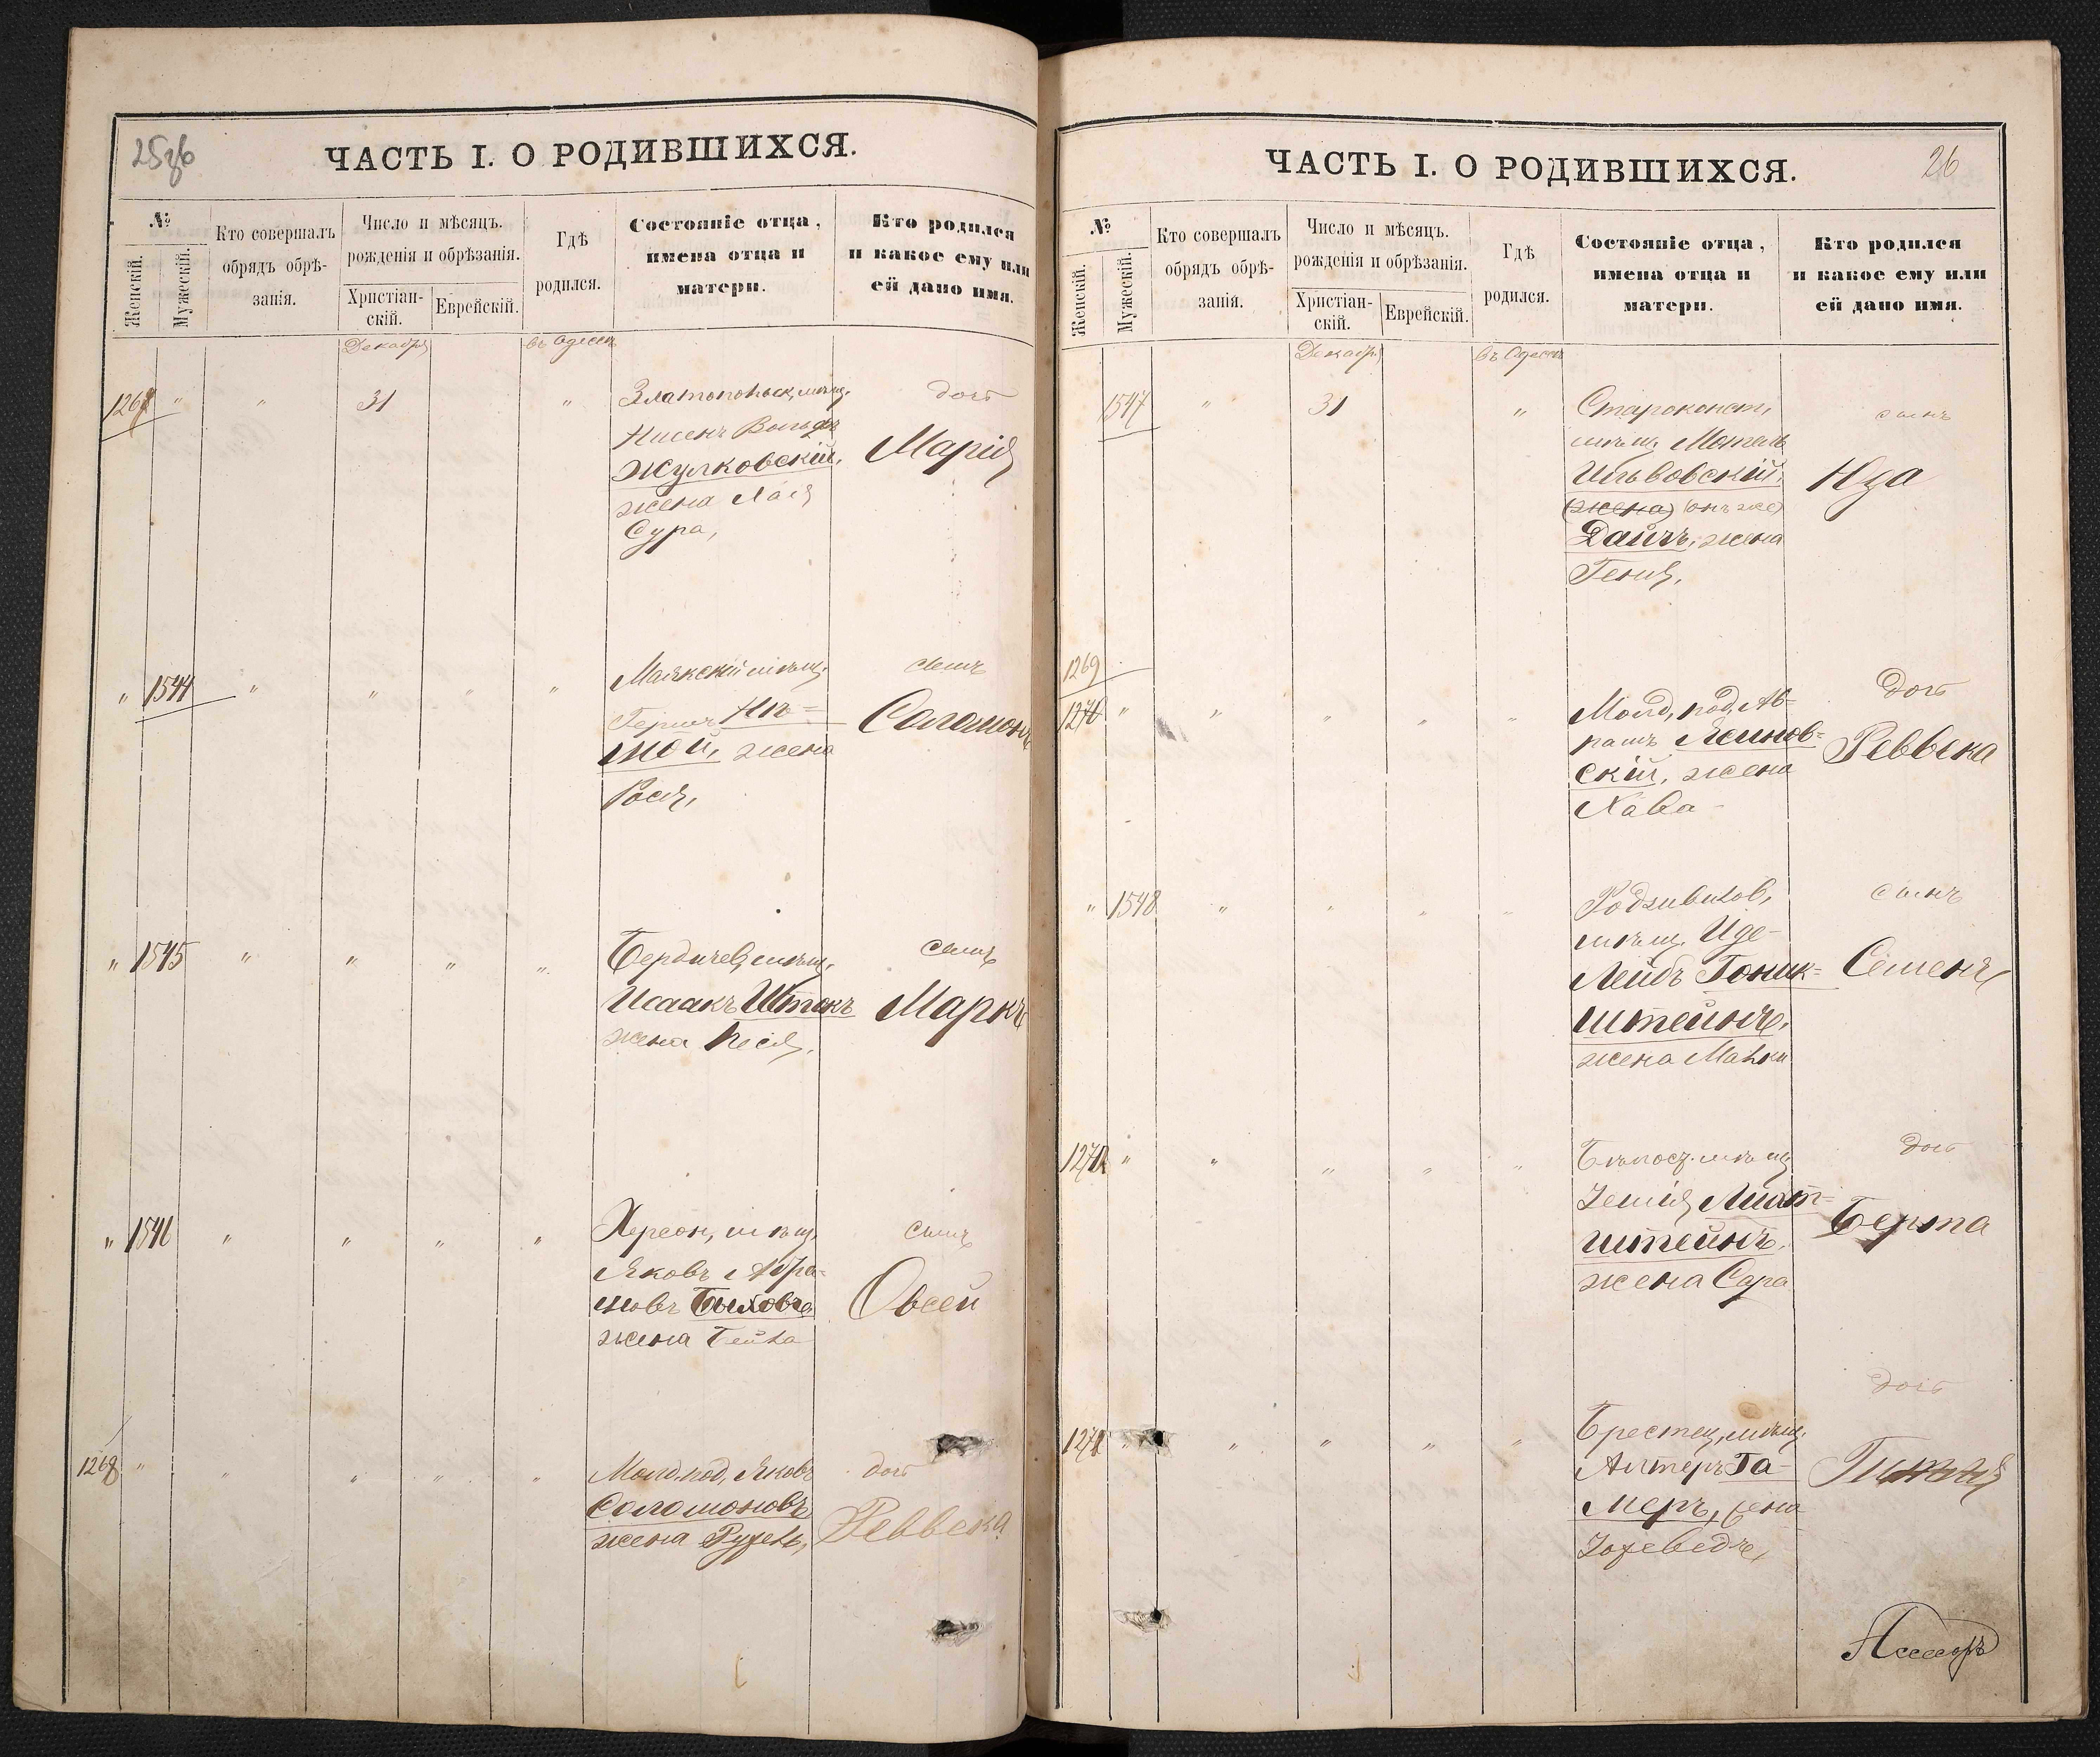 ЧАСТЬ I. О РОДИВШИХСЯ.
№
Женскій.
Мужескій.
Кто совершалъ
обрядъ обрѣ-
занія.
Число и мѣсяцъ.
рожденія и обрѣзанія.
Христіан-
скій.
Еврейскій.
Гдѣ
родился.
Состояніе отца,
имена отца и
матери.
Кто родился
и какое ему или
ей дано имя.
Декабря
въ Одессѣ
1267 " " 31 "
Златопольск. мѣщ.
Нисенъ Вольфъ
Жулковскій,
жена Хая
Сура,
дочь
Марія
" 1544 " " " "
Маякскій мѣщ.
Гершъ Нѣ=
мой, жена
Рося,
сынъ
Соломонъ
" 1545 " " " "
Бердичев, мѣщ,
Исаакъ Штокъ
жена Песя,
сынъ
Маркъ
" 1546 " " " "
Херсон, мѣщ,
Яковъ Абра=
мовъ Быховъ
жена Бейла
сынъ
Овсей
1268 " " " " "
Молд. под, Яковъ
Соломоновъ
жена Рухель,
дочь
Реввека
ЧАСТЬ I. О РОДИВШИХСЯ.
26
№
Женскій.
Мужескій.
Кто совершалъ
обрядъ обрѣ-
занія.
Число и мѣсяцъ.
рожденія и обрѣзанія.
Христіан-
скій.
Еврейскій.
Гдѣ
родился.
Состояніе отца,
имена отца и
матери.
Кто родился
и какое ему или
ей дано имя.
Декабря
въ Одессѣ
1547 " 31 "
Староконст,
мѣщ, Мотель
Ильвовскій,
(жена) (онъ же)
Дайчъ, жена
Геня,
сынъ
Ица
1269
1270 " " " " "
Молд, под, Аб-
рамъ Леинов=
скій, жена
Хава
дочь
Реввека
" 1548 " " " "
Родзивилов,
мѣщ, Иде-
Лейбъ Гоник=
штейнъ,
жена Малки
сынъ
Семенъ
1271 " " " " "
Бѣлосц. мѣщ
Земія Лихт=
штейнъ,
жена Сара
дочь
Берта
1272 " " " " "
Брестец, мѣщ.
Алтеръ Га-
меръ, жена
Іохеведъ,
дочь
Ассесоръ